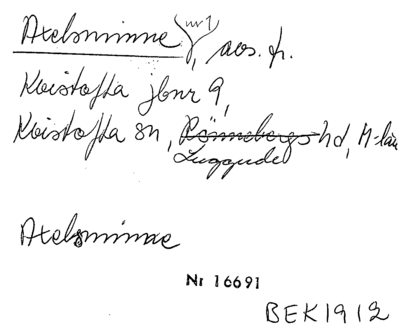 Axelsminne nr 1, avs. fr.
Kvistofta jbnr 9,
Kvistofta sn, Rönnebergs hd, M-län
Luggude
Axelsminne
Nr 16691
BEK 1912